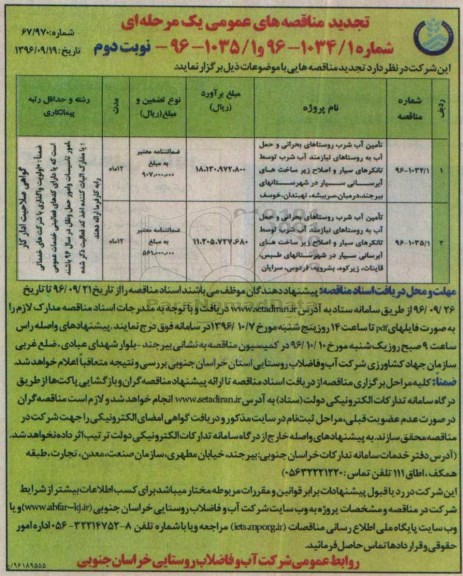 تجدید مناقصه های عمومی یک مرحله ای
شماره ۱۰۳۴/۱-۹۶ و ۱۰۳۵/۱-۹۶ - نوبت دوم
شماره: ۶۷/۹۷۰
تاریخ: ۱۳۹۶/۰۹/۱۹
این شرکت در نظر دارد تجدید مناقصه هایی با موضوعات ذیل برگزار نمایند.
ردیف
شماره مناقصه
نام پروژه
مبلغ برآورد (ریال)
نوع تضمین و مبلغ (ریال)
مدت
رشته و حداقل رتبه پیمانکاری
۱
۹۶-۱۰۳۴/۱
تأمین آب شرب روستاهای بحرانی و حمل
آب به روستاهای نیازمند آب شرب توسط
تانکرهای سیار و اصلاح زیر ساخت های
آبرسانی سیار در شهرستانهای
بیرجند، درمیان، سربیشه، نهبندان، خوسف
۱۸،۱۳۰،۹۷۲،۸۰۰
ضمانتنامه معتبر
به مبلغ
۹۰۷،۰۰۰،۰۰۰
۱۲ماه
۲
۹۶-۱۰۳۵/۱
تأمین آب شرب روستاهای بحرانی و حمل
آب به روستاهای نیازمند آب شرب توسط
تانکرهای سیار و اصلاح زیر ساخت های
آبرسانی سیار در شهرستانهای طبس،
قاینات، زیرکوه، بشرویه، فردوس، سرایان
۱۱،۲۰۵،۷۲۷،۶۸۰
ضمانتنامه معتبر
به مبلغ
۵۶۱،۰۰۰،۰۰۰
۱۲ماه
گواهی صلاحیت انبار کار
مهلت و محل دریافت اسناد مناقصه: پیشنهاد دهندگان موظف می باشند اسناد مناقصه را از تاریخ ۹۶/۰۹/۲۱ تا تاریخ
۹۶/۰۹/۲۶ از طریق سامانه ستاد به آدرس www.setadiran.ir دریافت و با توجه به مندرجات اسناد مناقصه مدارک لازم را
به صورت فایلهای pdf تا ساعت ۱۴ روز پنج شنبه مورخ ۱۳۹۶/۱۰/۷ در سامانه فوق درج نمایند. پیشنهادهای واصله راس
ساعت ۹ صبح روز یک شنبه مورخ ۹۶/۱۰/۱۰ در کمیسیون مناقصه به نشانی بیرجند - بلوار شهدای عبادی - ضلع غربی
سازمان جهاد کشاورزی شرکت آب و فاضلاب روستایی استان خراسان جنوبی بررسی و نتیجه متعاقباً اعلام خواهد شد.
ضمناً: کلیه مراحل برگزاری مناقصه از دریافت اسناد مناقصه تا ارائه پیشنهاد مناقصه گران و بازگشایی پاکت ها از طریق
درگاه سامانه تدارکات الکترونیکی دولت (ستاد) به آدرس www.setadiran.ir انجام خواهد شد و لازم است مناقصه گران
در صورت عدم عضویت قبلی، مراحل ثبت نام در سایت مذکور و دریافت گواهی امضای الکترونیکی را جهت شرکت در
مناقصه محقق سازند. به پیشنهادهای واصله خارج از درگاه سامانه تدارکات الکترونیکی دولت ترتیب اثر داده نخواهد شد.
(آدرس دفتر خدمات سامانه تدارکات خراسان جنوبی: بیرجند، خیابان مطهری، سازمان صنعت، معدن، تجارت، طبقه
همکف، اطاق ۱۱۱ تلفن تماس: ۰۵۶۳۲۲۲۱۲۲۰)
این شرکت در رد یا قبول پیشنهادات برابر قوانین و مقررات مربوطه مختار میباشد برای کسب اطلاعات بیشتر از شرایط
شرکت در مناقصه و مشخصات پروژه به وب سایت شرکت آب و فاضلاب روستایی خراسان جنوبی (www.abfar-kj.ir) و یا
وب سایت پایگاه ملی اطلاع رسانی مناقصات (iets.mporg.ir) مراجعه و یا با شماره تلفن ۸-۳۲۲۱۴۷۵۲-۰۵۶ اداره امور
حقوقی و قراردادها تماس حاصل فرمائید.
روابط عمومی شرکت آب و فاضلاب روستایی خراسان جنوبی
۹۶۱۸۹۵۵۵